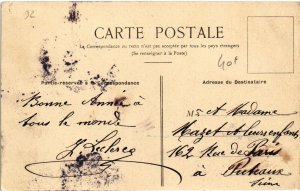 32
CARTE POSTALE
40f
La Correspondance au recto n'est pas acceptée par tous les pays étrangers
(Se renseigner à la Poste)
Partie réservée à la Correspondance
Adresse du Destinataire
Bonne Année à
tous le monde
Leclercq
Mr et Madame
Mazet et leurs enfants
162 Rue de Paris
à Puteaux
Seine